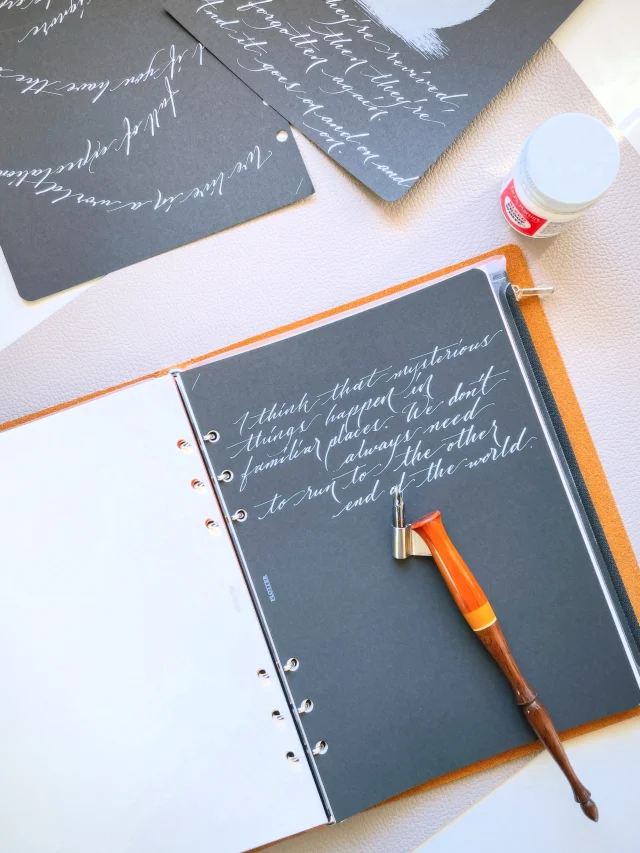 ignore
if you have the
full of expectation
We live in a world
they're revived
then they're
forgotten again.
And it goes on and on and
on.
I think that mysterious
things happen in
familiar places. We don't
always need
to run to the other
end of the world.